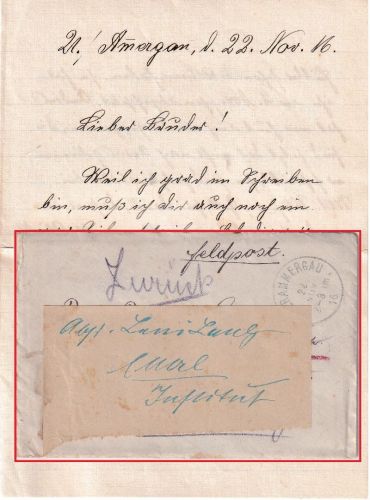 U.! Ammergau, d. 22. Nov. 16.
Lieber Bruder!
Weil ich grad im Schreiben
bin, muß ich dir auch noch ein
Feldpost.
Zurück
RAMMERGAU
22
NOV
16
Abs. Leni Lang
Ettal
Institut